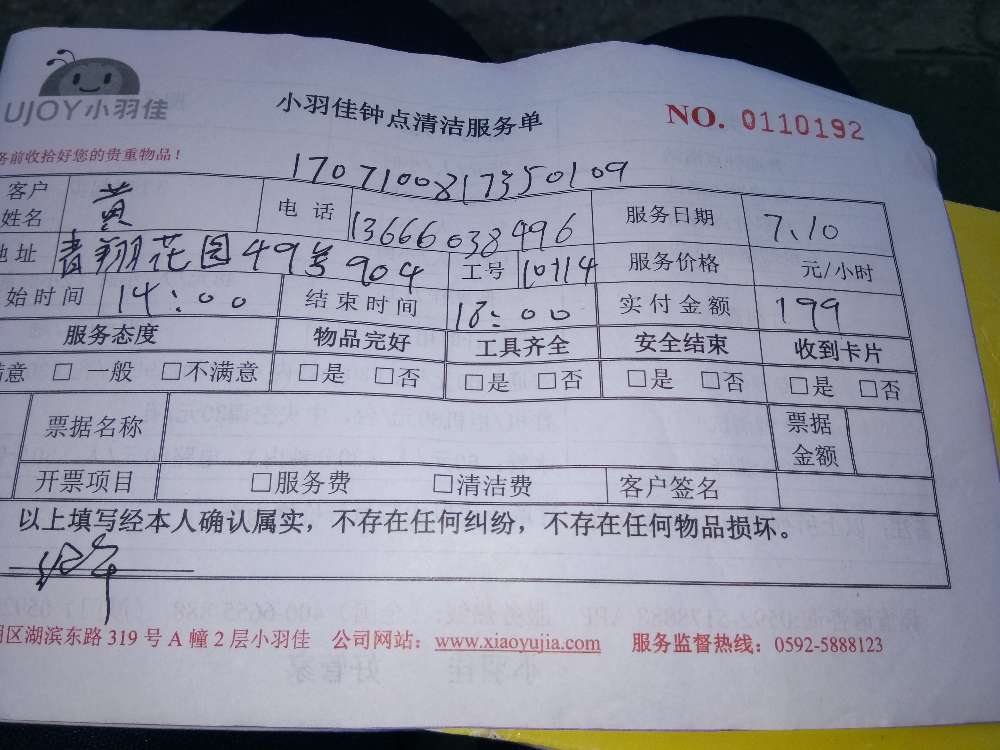 UJOY小羽佳
小羽佳钟点清洁服务单
NO. 0110192
务前收拾好您的贵重物品！
1707100817350109
客户姓名 黄 电 话 13666038996 服务日期 7、10
地址 青翔花园49号904 工号 10114 服务价格 元/小时
始时间 14：00 结束时间 18：00 实付金额 199
服务态度 物品完好 工具齐全 安全结束 收到卡片
满意 □ 一般 □不满意 □是 □否 □是 □否 □是 □否 □是 □否
票据名称 票据金额
开票项目 □服务费 □清洁费 客户签名
以上填写经本人确认属实，不存在任何纠纷，不存在任何物品损坏。
明区湖滨东路 319 号 A 幢 2 层小羽佳 公司网站：www.xiaoyujia.com 服务监督热线：0592-5888123